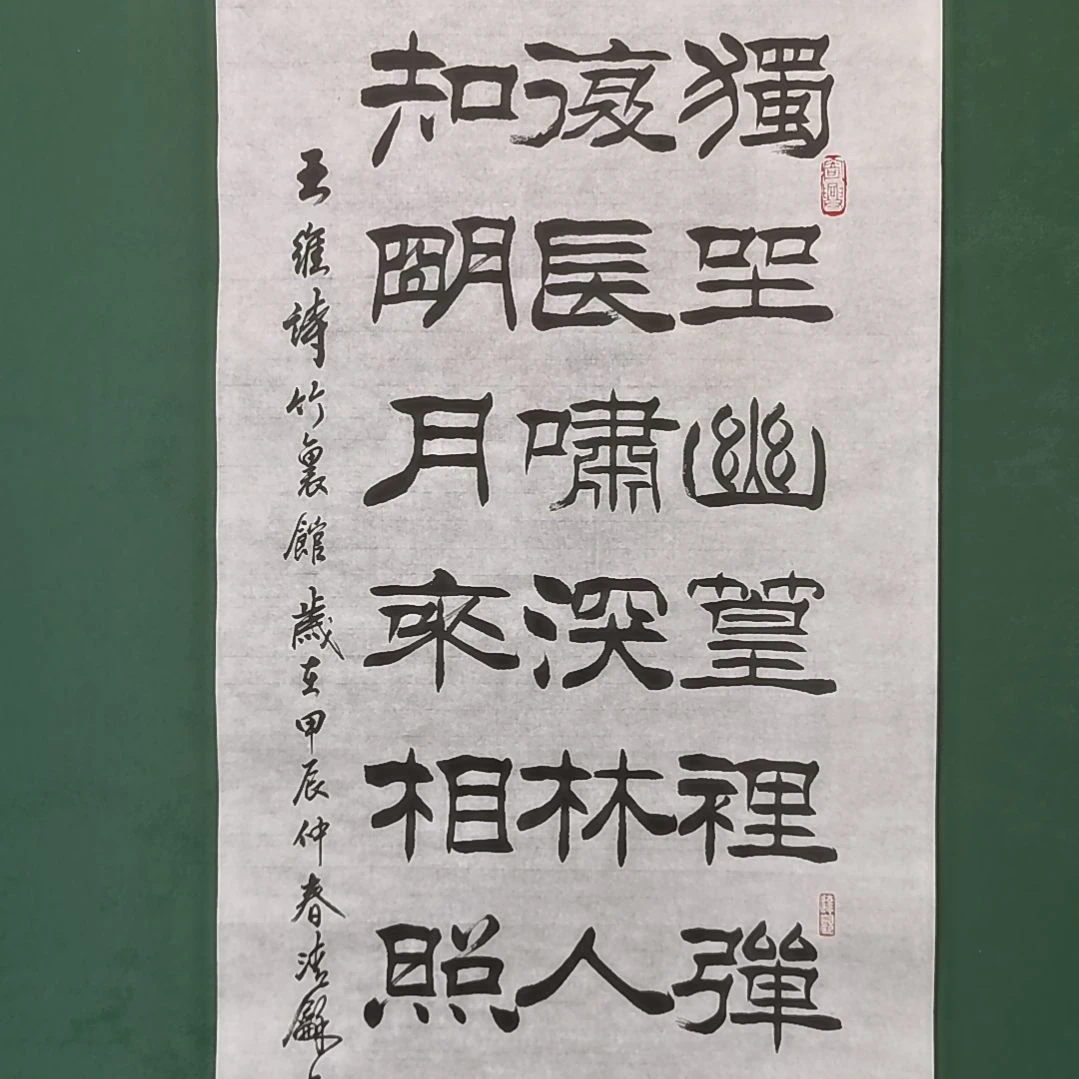 獨坐幽篁裡彈
復長嘯深林人
知明月來相照
王維詩竹裏館歲在甲辰仲春